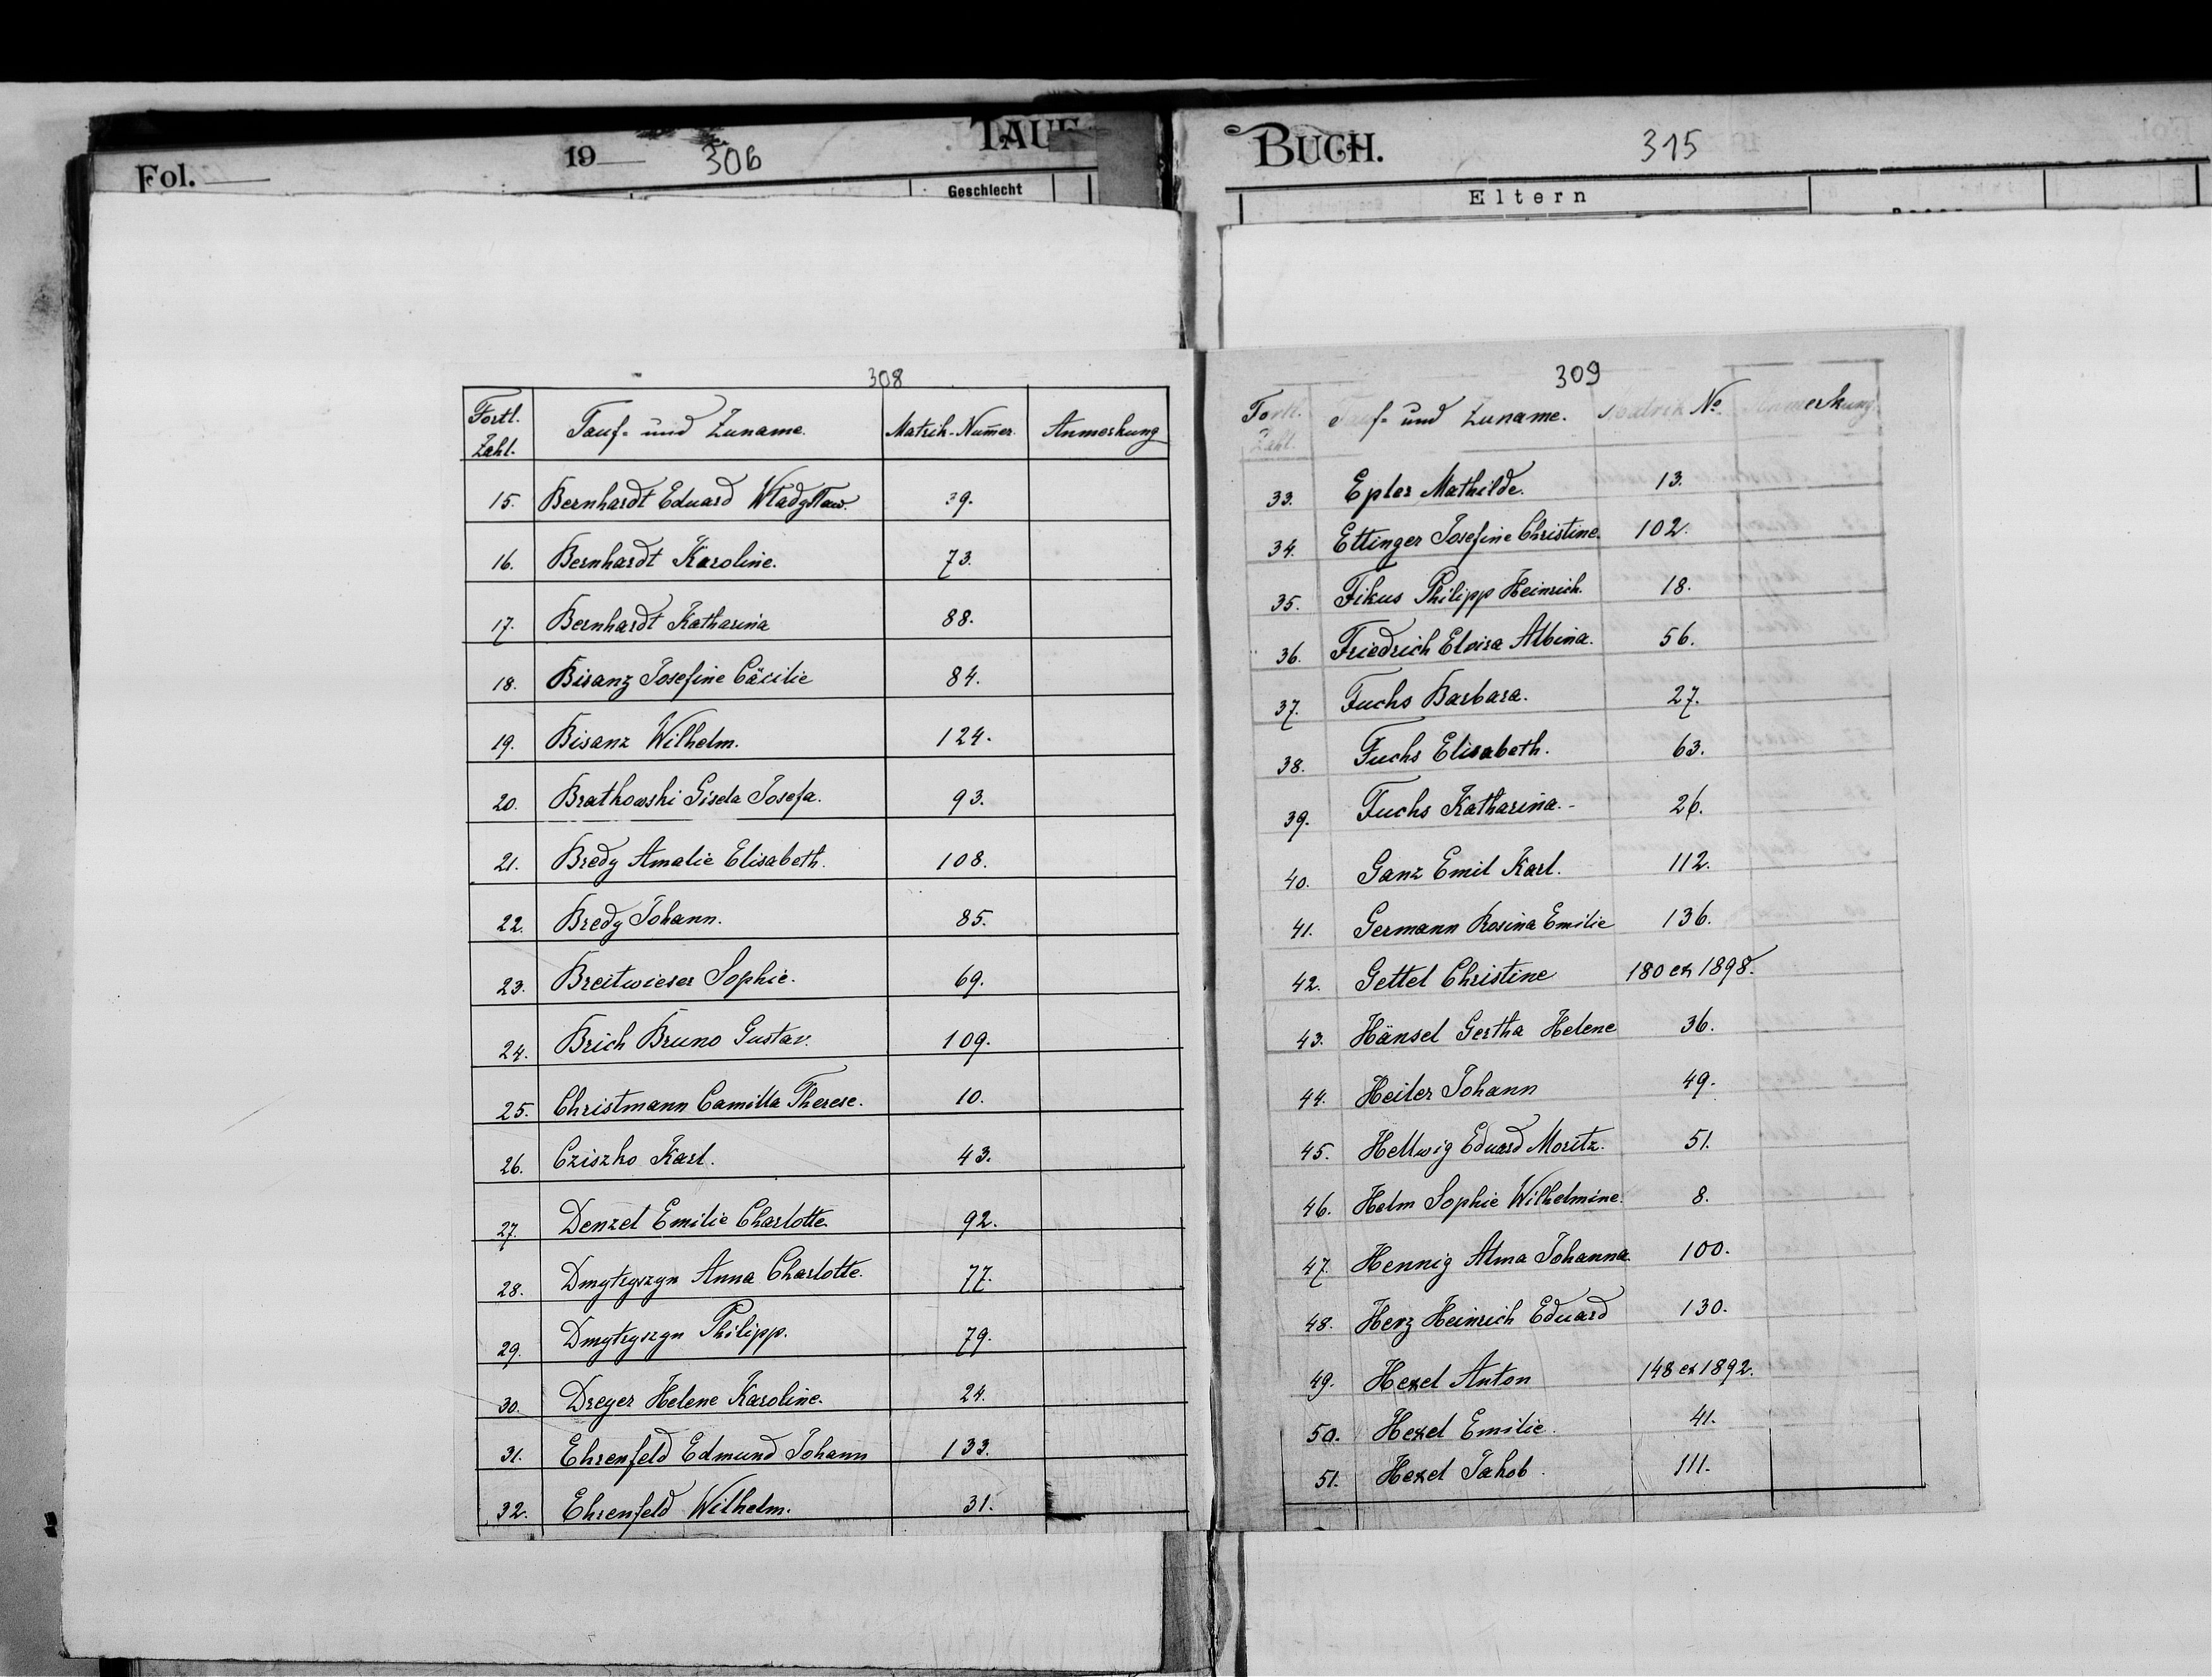 Fol. 19 306 TAUF-
Geschlecht
308
Fortl. Zahl. Tauf- und Zuname. Matrik-Num̄er. Anmerkung
15. Bernhardt Eduard Władysław. 39.
16. Bernhardt Karoline. 73.
17. Bernhardt Katharina 88.
18. Bisanz Josefine Cäcilie 84.
19. Bisanz Wilhelm. 124.
20. Bratkowski Gisela Josefa. 93.
21. Bredy Amalie Elisabeth. 108.
22. Bredy Johann. 85.
23. Breitwieser Sophie. 69.
24. Brich Bruno Gustav. 109.
25. Christmann Camilla Therese. 10.
26. Cziszko Karl. 43.
27. Denzel Emilie Charlotte. 92.
28. Dmytryszyn Anna Charlotte. 77.
29. Dmytryszyn Philipp. 79.
30. Dreyer Helene Karoline. 24.
31. Ehrenfeld Edmund Johann 133.
32. Ehrenfeld Wilhelm. 31.
BUCH. 315
Eltern
309
Fortl. Zahl. Tauf- und Zuname. Matrik No Anmerkung.
33. Epler Mathilde. 13.
34. Ettinger Josefine Christine. 102.
35. Fikus Philipp Heinrich. 18.
36. Friedrich Eloisa Albina. 56.
37. Fuchs Barbara. 27.
38. Fuchs Elisabeth. 63.
39. Fuchs Katharina. 26.
40. Ganz Emil Karl. 112.
41. Germann Rosina Emilie 136.
42. Gettel Christine 180 ex 1898.
43. Hänsel Gertha Helene 36.
44. Heiler Johann 49.
45. Hellwig Eduard Moritz. 51.
46. Helm Sophie Wilhelmine. 8.
47. Hennig Alma Johanna. 100.
48. Herz Heinrich Eduard 130.
49. Hexel Anton 148 ex 1892.
50. Hexel Emilie. 41.
51. Hexel Jakob. 111.